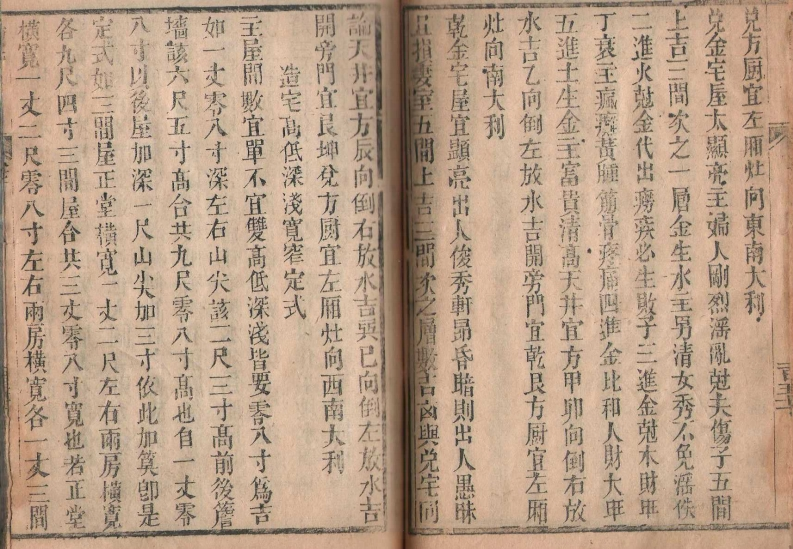 兌方厨宜左厢灶向東南大利
兌金宅屋太顯亮主婦人剛烈淫亂尅夫傷子五間
上吉三間次之一層金生水主男清女秀不免淫佚
二進火尅金代出癆疾必生敗子三進金尅木財耗
丁衰主瘋癱黃腫筋骨疼痛四進金比和人財大旺
五進土生金主富貴清高天井宜方甲卯向倒右放
水吉乙向倒左放水吉開旁門宜乾艮方厨宜左厢
灶向南大利
乾金宅屋宜顯亮出人俊秀軒昻昏暗則出人愚昧
且損妻室五間上吉三間次之層數吉凶與兌宅同
論天井宜方辰向倒右放水吉巽巳向倒左放水吉
開旁門宜艮坤兌方厨宜左厢灶向西南大利
造宅高低深淺寬窄定式
主屋間數宜單不宜雙高低深淺皆要零八寸爲吉
如一丈零八寸深左右山尖該二尺三寸高前後簷
墻該六尺五寸高合共九尺零八寸高也自一丈零
八寸以後屋加深一尺山尖加三寸依此加算卽是
定式如三間屋正堂橫寬一丈二尺左右兩房橫寬
各九尺四寸三間屋合共三丈零八寸寬也若正堂
橫寬一丈二尺零八寸左右兩房橫寬各一丈三間